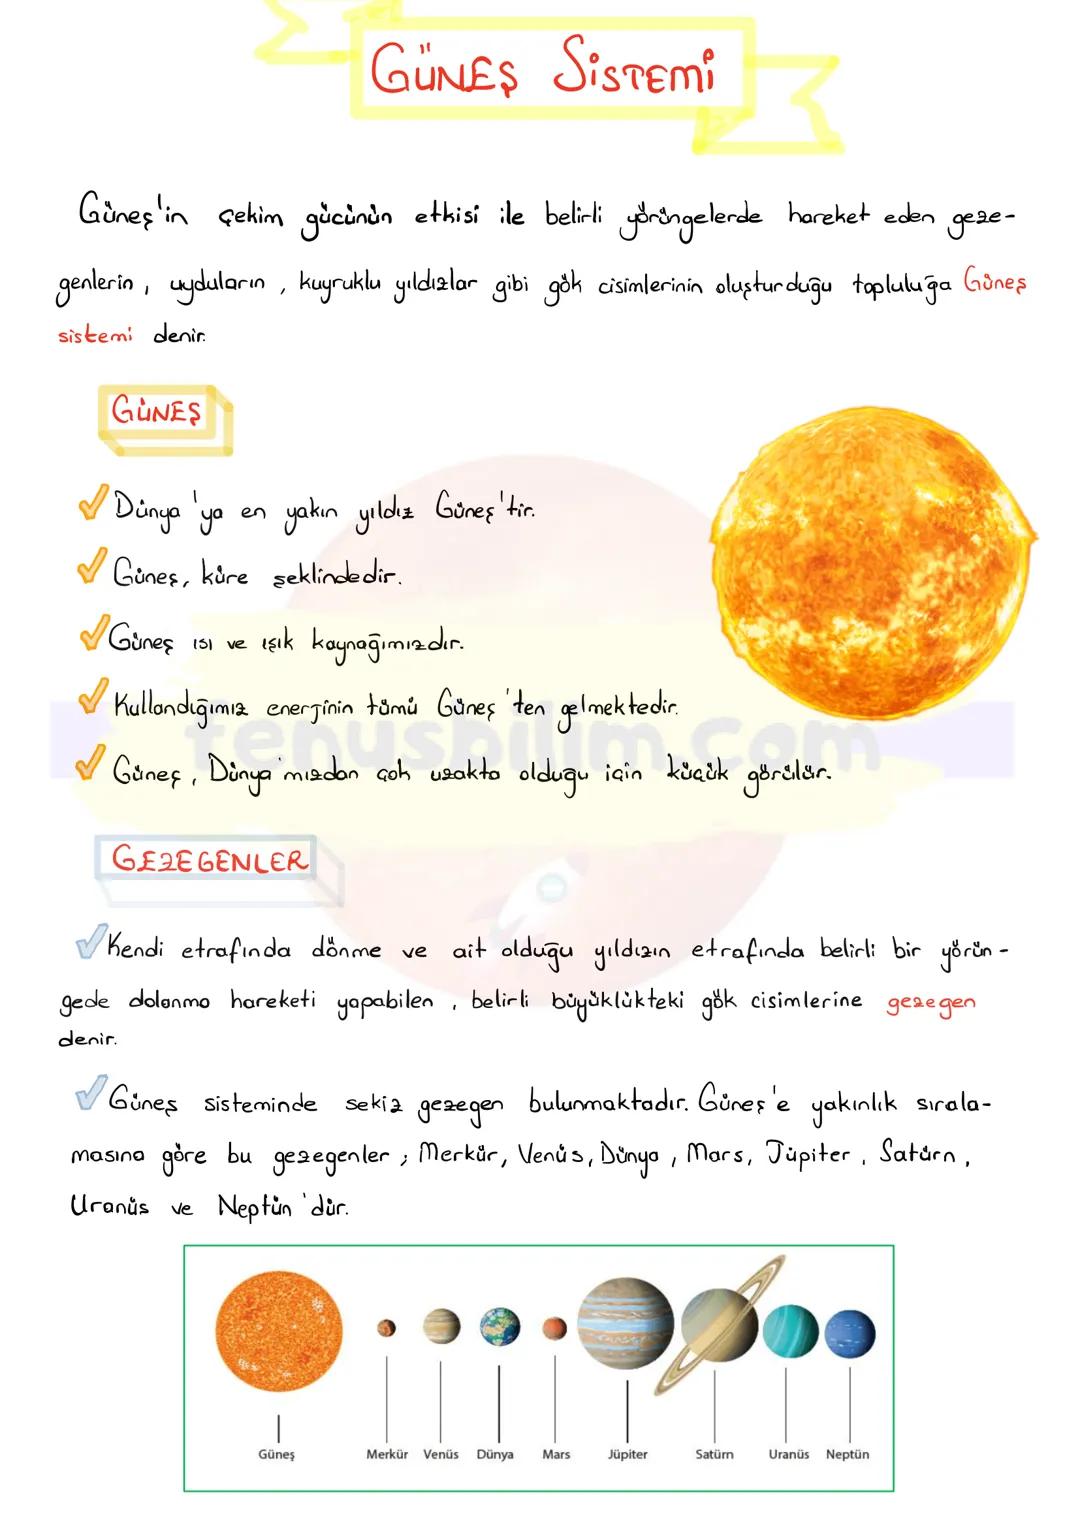 GÜNEŞ SİSTEMİ
Güneş'in çekim gücünün etkisi ile belirli yörüngelerde hareket eden geze-
genlerin, uyduların, kuyruklu yıldızlar gibi gök cisimlerinin oluşturduğu topluluğa Güneş
sistemi denir.
GÜNEŞ
Dünya'ya en yakın yıldız Güneş'tir.
Güneş, küre şeklindedir.
Güneş ısı ve ışık kaynağımızdır.
Kullandığımız enerjinin tümü Güneş'ten gelmektedir.
fenusbilim.com
Güneş, Dünya'mızdan çok uzakta olduğu için küçük görülür.
GEZEGENLER
Kendi etrafında dönme ve ait olduğu yıldızın etrafında belirli bir yörün-
gede dolanma hareketi yapabilen, belirli büyüklükteki gök cisimlerine gezegen
denir.
Güneş sisteminde sekiz gezegen bulunmaktadır. Güneş'e yakınlık sırala-
masına göre bu gezegenler; Merkür, Venüs, Dünya, Mars, Jüpiter, Satürn,
Uranüs ve Neptün'dür.
Güneş Merkür Venüs Dünya Mars Jüpiter Satürn Uranüs Neptün